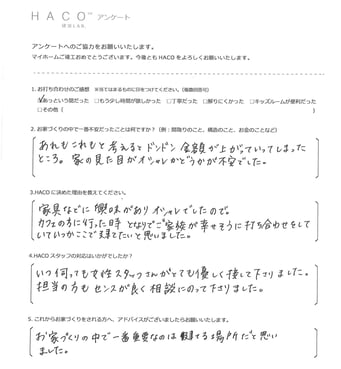 HACO アンケート
アンケートへのご協力をお願いいたします。
マイホームご竣工おめでとうございます。今後ともHACOをよろしくお願いいたします。
1. お打ち合わせのご感想 ※当てはまるものに印をつけてください。(複数回答可)
☑あっという間だった □もう少し時間が欲しかった □丁寧だった □解りにくかった □キッズルームが便利だった
□その他(
2. お家づくりの中で一番不安だったことは何ですか?(例:間取りのこと、構造のこと、お金のことなど)
あれもこれもと考えるとドンドン金額が上がっていってしまった
ところ。家の見た目がオシャレかどうかが不安でした。
3.HACOに決めた理由を教えてください。
家具などに興味がありオシャレでしたので。
カフェの方に行った時となりでご家族が幸せそうに打ち合わせをして
いていつかここで建てたいと思いました。
4.HACOスタッフの対応はいかがでしたか?
いつ伺っても女性スタッフさんがとても優しく接して下さりました。
担当の方もセンスが良く相談にのって下さりました。
5. これからお家づくりをされる方へ、アドバイスがございましたらお願いいたします。
お家づくりの中で一番重要なのは建てる場所だと思い
ました。